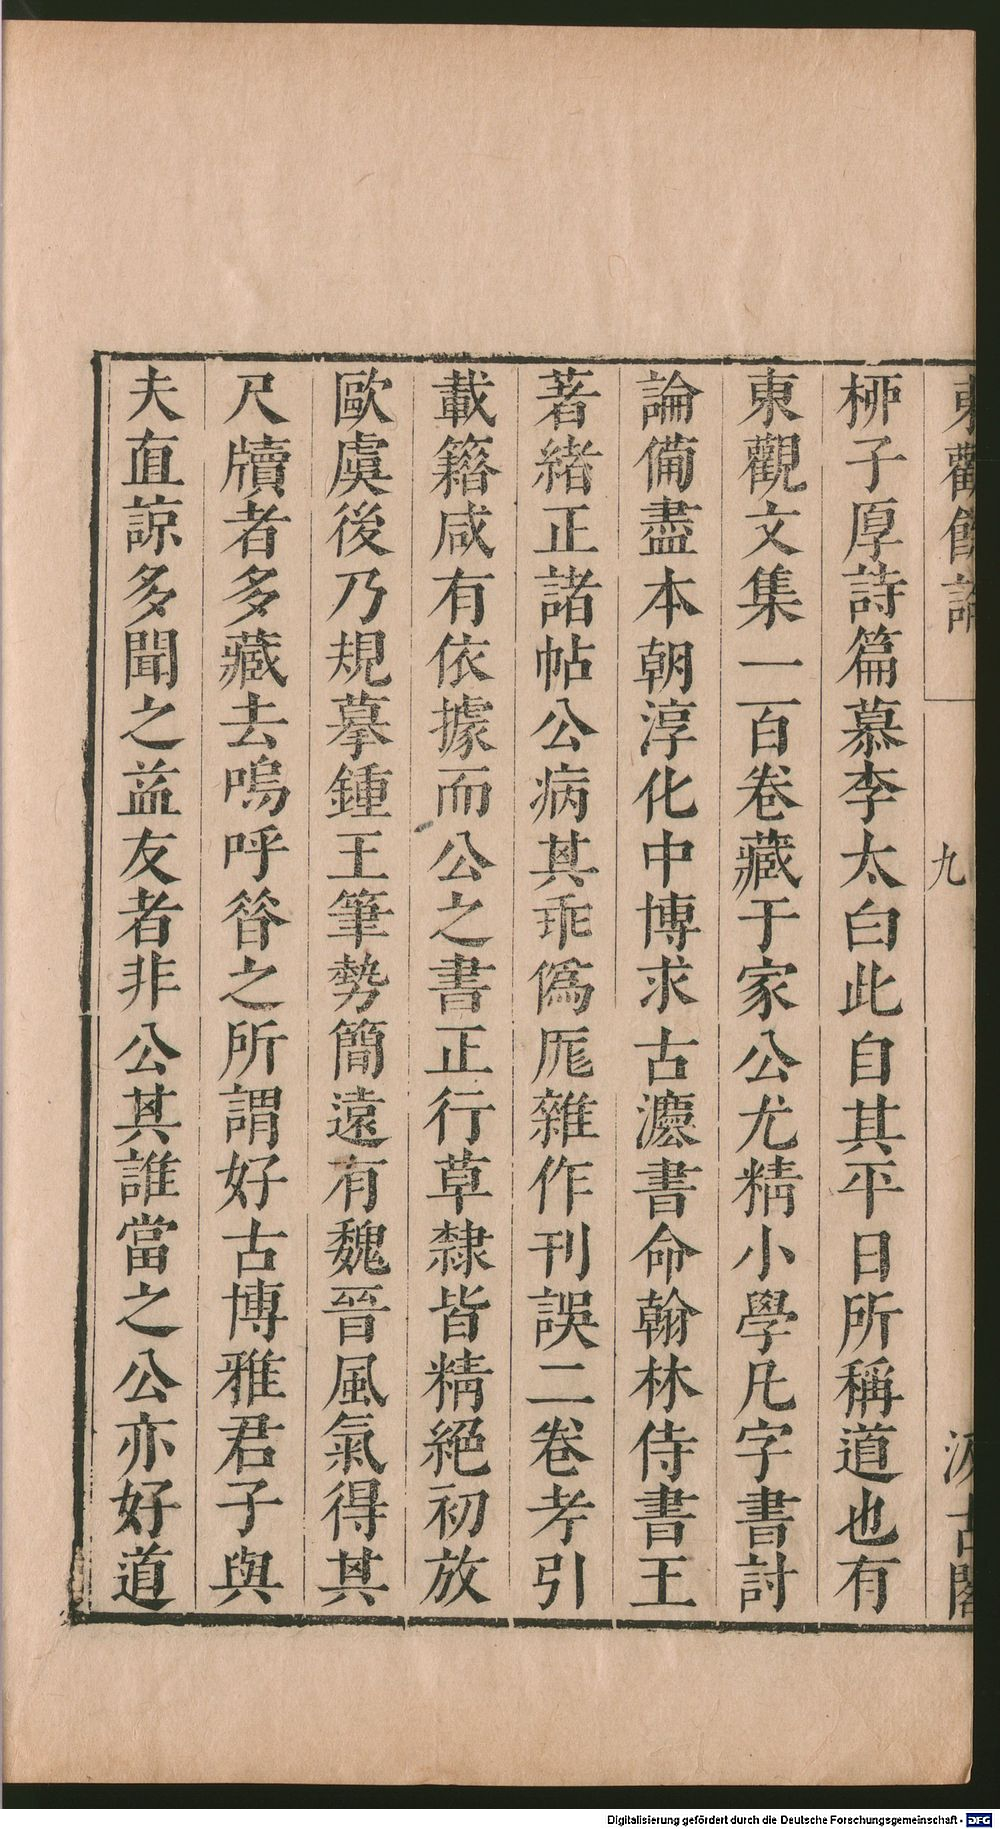 東觀餘論
九
汲古閣
栁子厚詩篇慕李太白此自其平日所稱道也有
東觀文集一百卷藏于家公尤精小學凡字書討
論備盡本朝淳化中博求古灋書命翰林侍書王
著緒正諸帖公病其乖僞厖雜作刊誤二卷考引
載籍咸有依據而公之書正行草隸皆精絕初放
歐虞後乃規摹鍾王筆勢簡遠有魏晉風氣得其
尺牘者多藏去嗚呼昝之所謂好古博雅君子與
夫直諒多聞之益友者非公其誰當之公亦好道
Digitalisierung gefördert durch die Deutsche Forschungsgemeinschaft - DFG